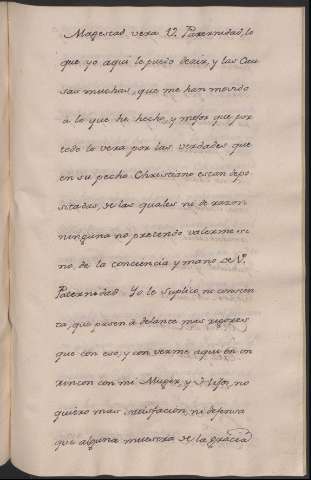 Magestad, vera V. Paternidad, lo
que yo aqui le puedo deçir, y las Cau
sas muchas, que me han movido
à lo que he hecho, y mejor que por
todo lo vera por las verdades que
en su pecho Christiano estan depo
sitadas, de las quales ni de razon
ninguna no pretendo valerme si
no, de la conciencia y mano de V.
Paternidad. Yo le suplico, no consien
ta, que pasen à delante mas rigores
que con eso, y con verme aqui en un
rincon con mi Muger, y Hijos, no
quiero mas satisfacion, ni defensa
que alguna muestra de la gracia